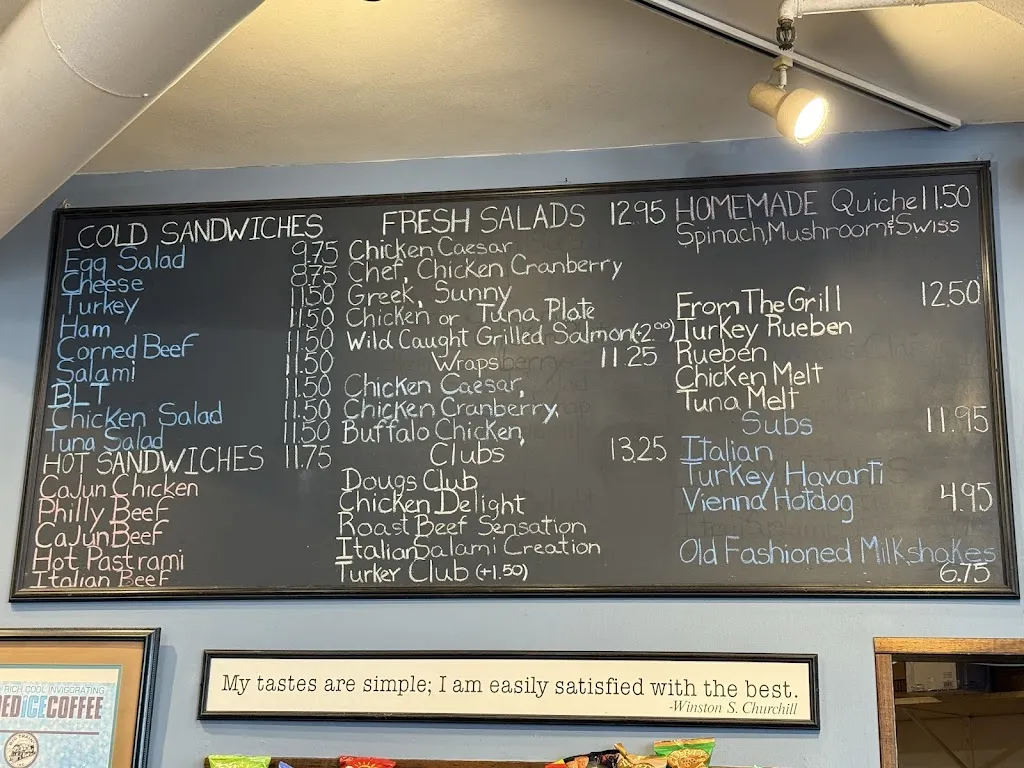 COLD SANDWICHES
Egg Salad 9.75
Cheese 8.75
Turkey 11.50
Ham 11.50
Corned Beef 11.50
Salami 11.50
BLT 11.50
Chicken Salad 11.50
Tuna Salad 11.50
HOT SANDWICHES 11.75
Cajun Chicken
Philly Beef
Cajun Beef
Hot Pastrami
Italian Beef
FRESH SALADS 12.95
Chicken Caesar
Chef, Chicken Cranberry
Greek, Sunny
Chicken or Tuna Plate
Wild Caught Grilled Salmon(+2.00)
Wraps 11.25
Chicken Caesar,
Chicken Cranberry,
Buffalo Chicken,
Clubs 13.25
Dougs Club
Chicken Delight
Roast Beef Sensation
Italian Salami Creation
Turkey Club (+1.50)
HOMEMADE Quiche 11.50
Spinach, Mushroom & Swiss
From The Grill 12.50
Turkey Rueben
Rueben
Chicken Melt
Tuna Melt
Subs 11.95
Italian
Turkey Havarti
Vienna Hotdog 4.95
Old Fashioned Milkshakes
6.75
My tastes are simple; I am easily satisfied with the best.
-Winston S. Churchill
RICH COOL INVIGGRATING
EDiCECOFFEE